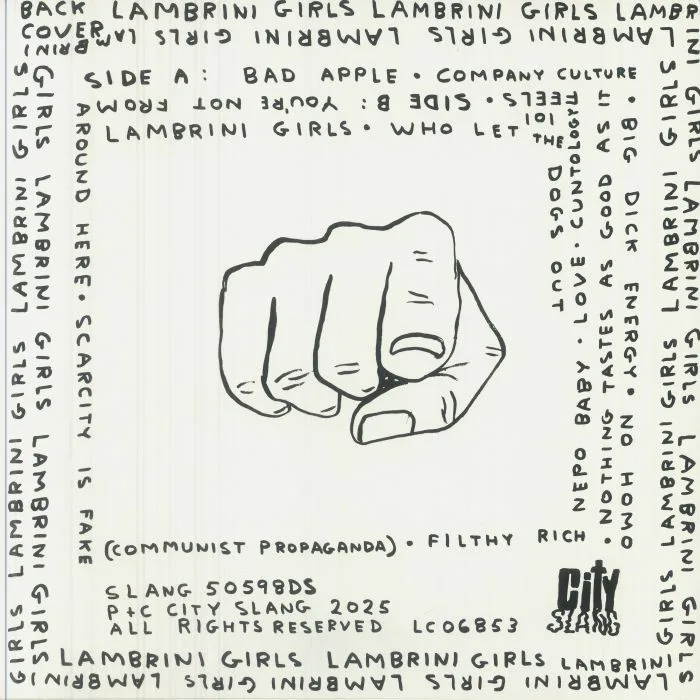 BACK LAMBRINI GIRLS LAMBRINI GIRLS LAMBRINI
COVER
LAMBRINI GIRLS LAMBRINI GIRLS LAMBRINI
SIDE A: BAD APPLE • COMPANY CULTURE
• BIG DICK ENERGY • NO HOMO
• NOTHING TASTES AS GOOD AS IT
FEELS • SIDE B: YOU'RE NOT FROM
AROUND HERE • SCARCITY IS FAKE
(COMMUNIST PROPAGANDA) • FILTHY RICH
NEPO BABY • LOVE • CUNTOLOGY
101
LAMBRINI GIRLS • WHO LET
THE
DOGS OUT
GIRLS LAMBRINI GIRLS LAMBRINI GIRLS
GIRLS LAMBRINI GIRLS LAMBRINI GIRLS
GIRLS LAMBRINI GIRLS LAMBRINI GIRLS
GIRLS LAMBRINI GIRLS LAMBRINI GIRLS
SLANG 50598DS
P+C CITY SLANG 2025
ALL RIGHTS RESERVED LC06853
City
SLANG
LAMBRINI GIRLS LAMBRINI GIRLS LAMBRINI
LAMBRINI GIRLS LAMBRINI GIRLS LAMBRINI